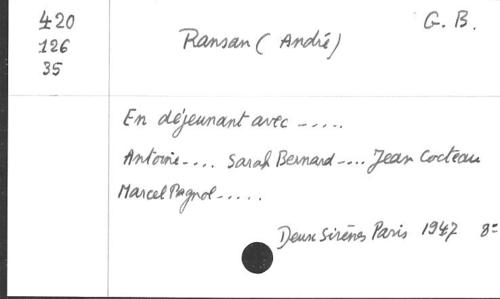 420
126
35
G. B.
Ransan ( André)
En déjeunant avec -.....
Antoine-.... Sarah Bernard-.... Jean Cocteau
Marcel Pagnol-.....
Deux Sirènes Paris 1947 8=